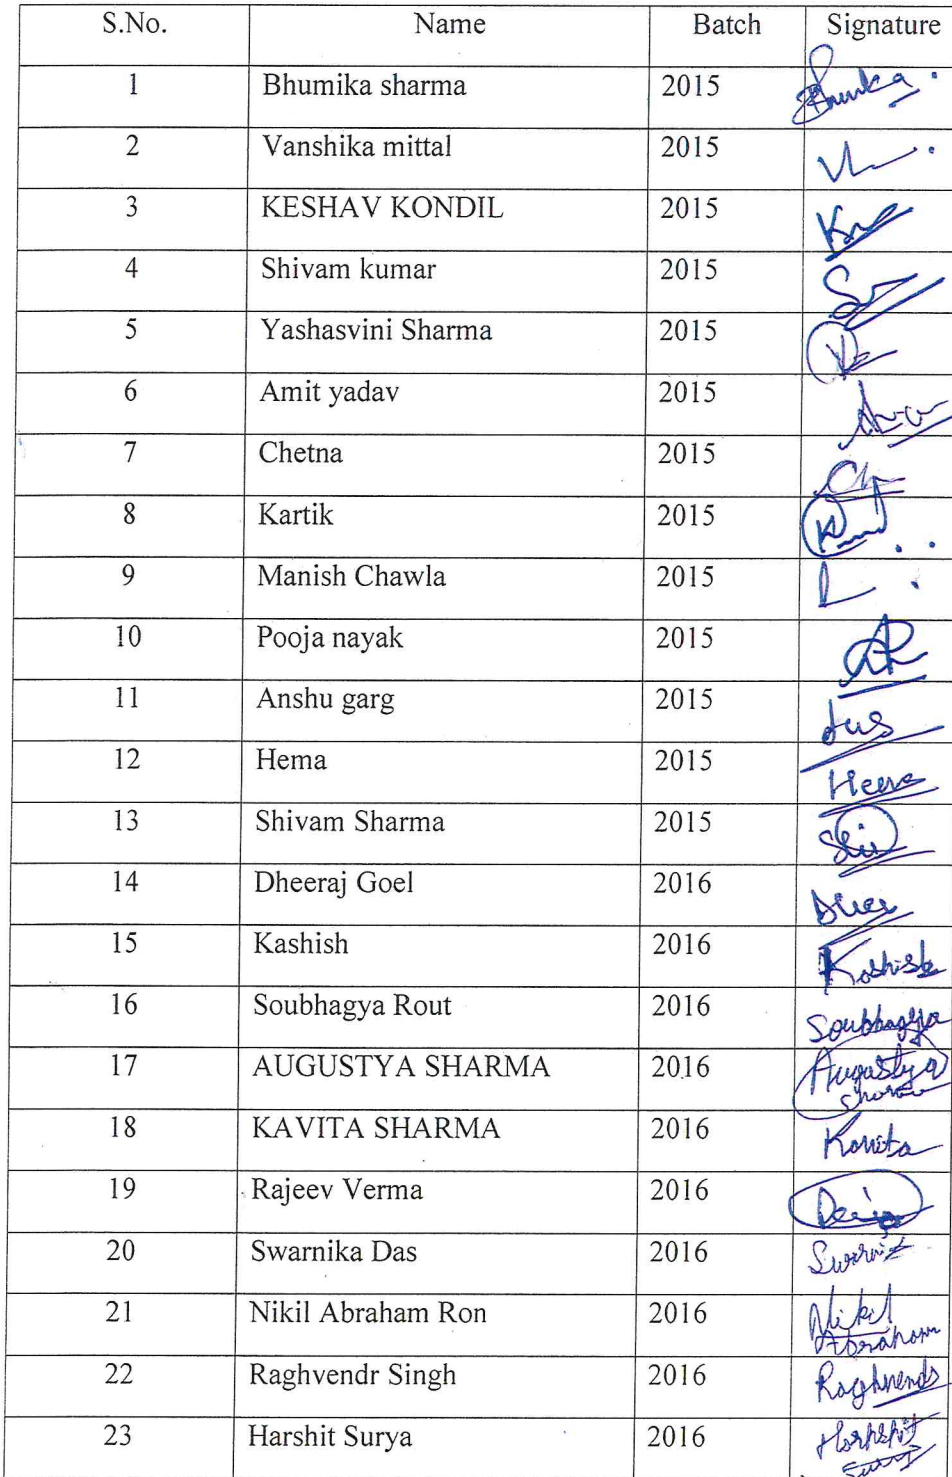 S.No. Name Batch Signature
1 Bhumika sharma 2015 Bhumika
2 Vanshika mittal 2015
3 KESHAV KONDIL 2015
4 Shivam kumar 2015
5 Yashasvini Sharma 2015
6 Amit yadav 2015
7 Chetna 2015
8 Kartik 2015
9 Manish Chawla 2015
10 Pooja nayak 2015
11 Anshu garg 2015
12 Hema 2015
13 Shivam Sharma 2015
14 Dheeraj Goel 2016
15 Kashish 2016 Kashish
16 Soubhagya Rout 2016 Soubhagya
17 AUGUSTYA SHARMA 2016 Augustya
Sharma
18 KAVITA SHARMA 2016 Kavita
19 Rajeev Verma 2016
20 Swarnika Das 2016
21 Nikil Abraham Ron 2016 Nikil
Abraham
22 Raghvendr Singh 2016
23 Harshit Surya 2016 Harshit